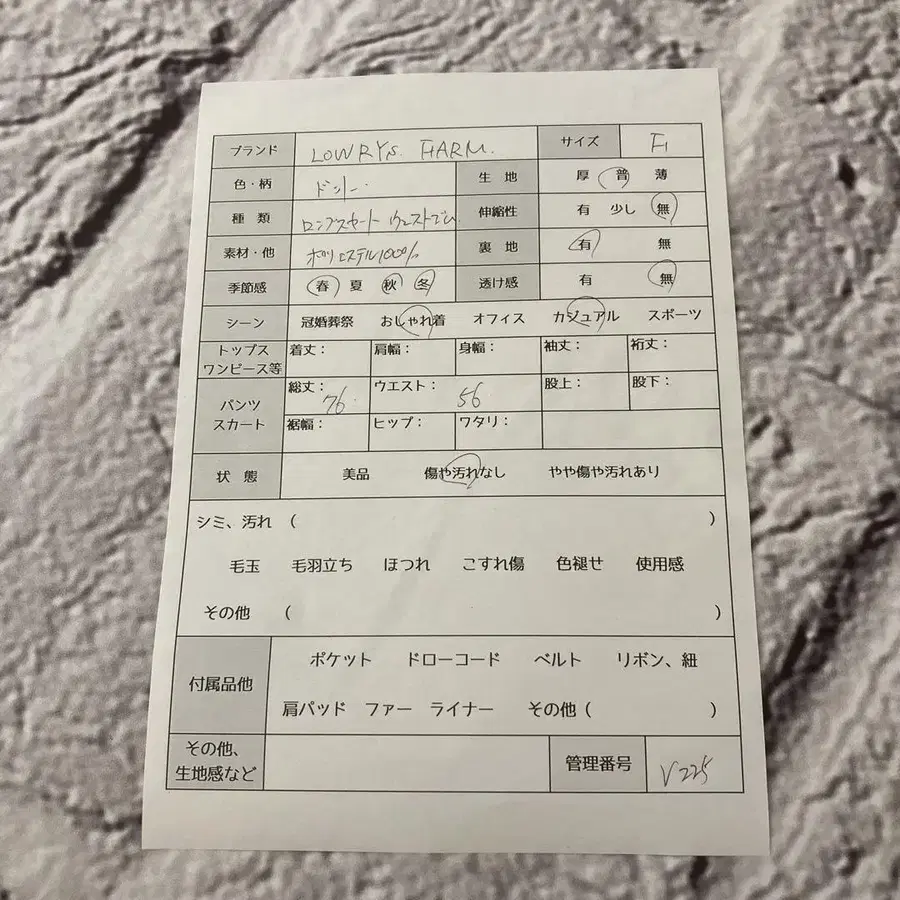 ブランド LOWRYS FARM. サイズ F
色・柄 ドット 生 地 厚 普 薄
種 類 ロングスカート ウエストゴム 伸縮性 有 少し 無
素材・他 ポリエステル100% 裏 地 有 無
季節感 春 夏 秋 冬 透け感 有 無
シーン 冠婚葬祭 おしゃれ着 オフィス カジュアル スポーツ
トップス
ワンピース等 着丈： 肩幅： 身幅： 袖丈： 裄丈：
パンツ
スカート 総丈：76 ウエスト：56 股上： 股下：
裾幅： ヒップ： ワタリ：
状 態 美品 傷や汚れなし やや傷や汚れあり
シミ、汚れ （ ）
毛玉 毛羽立ち ほつれ こすれ傷 色褪せ 使用感
その他 （ ）
付属品他 ポケット ドローコード ベルト リボン、紐
肩パッド ファー ライナー その他（ ）
その他、
生地感など 管理番号 V225